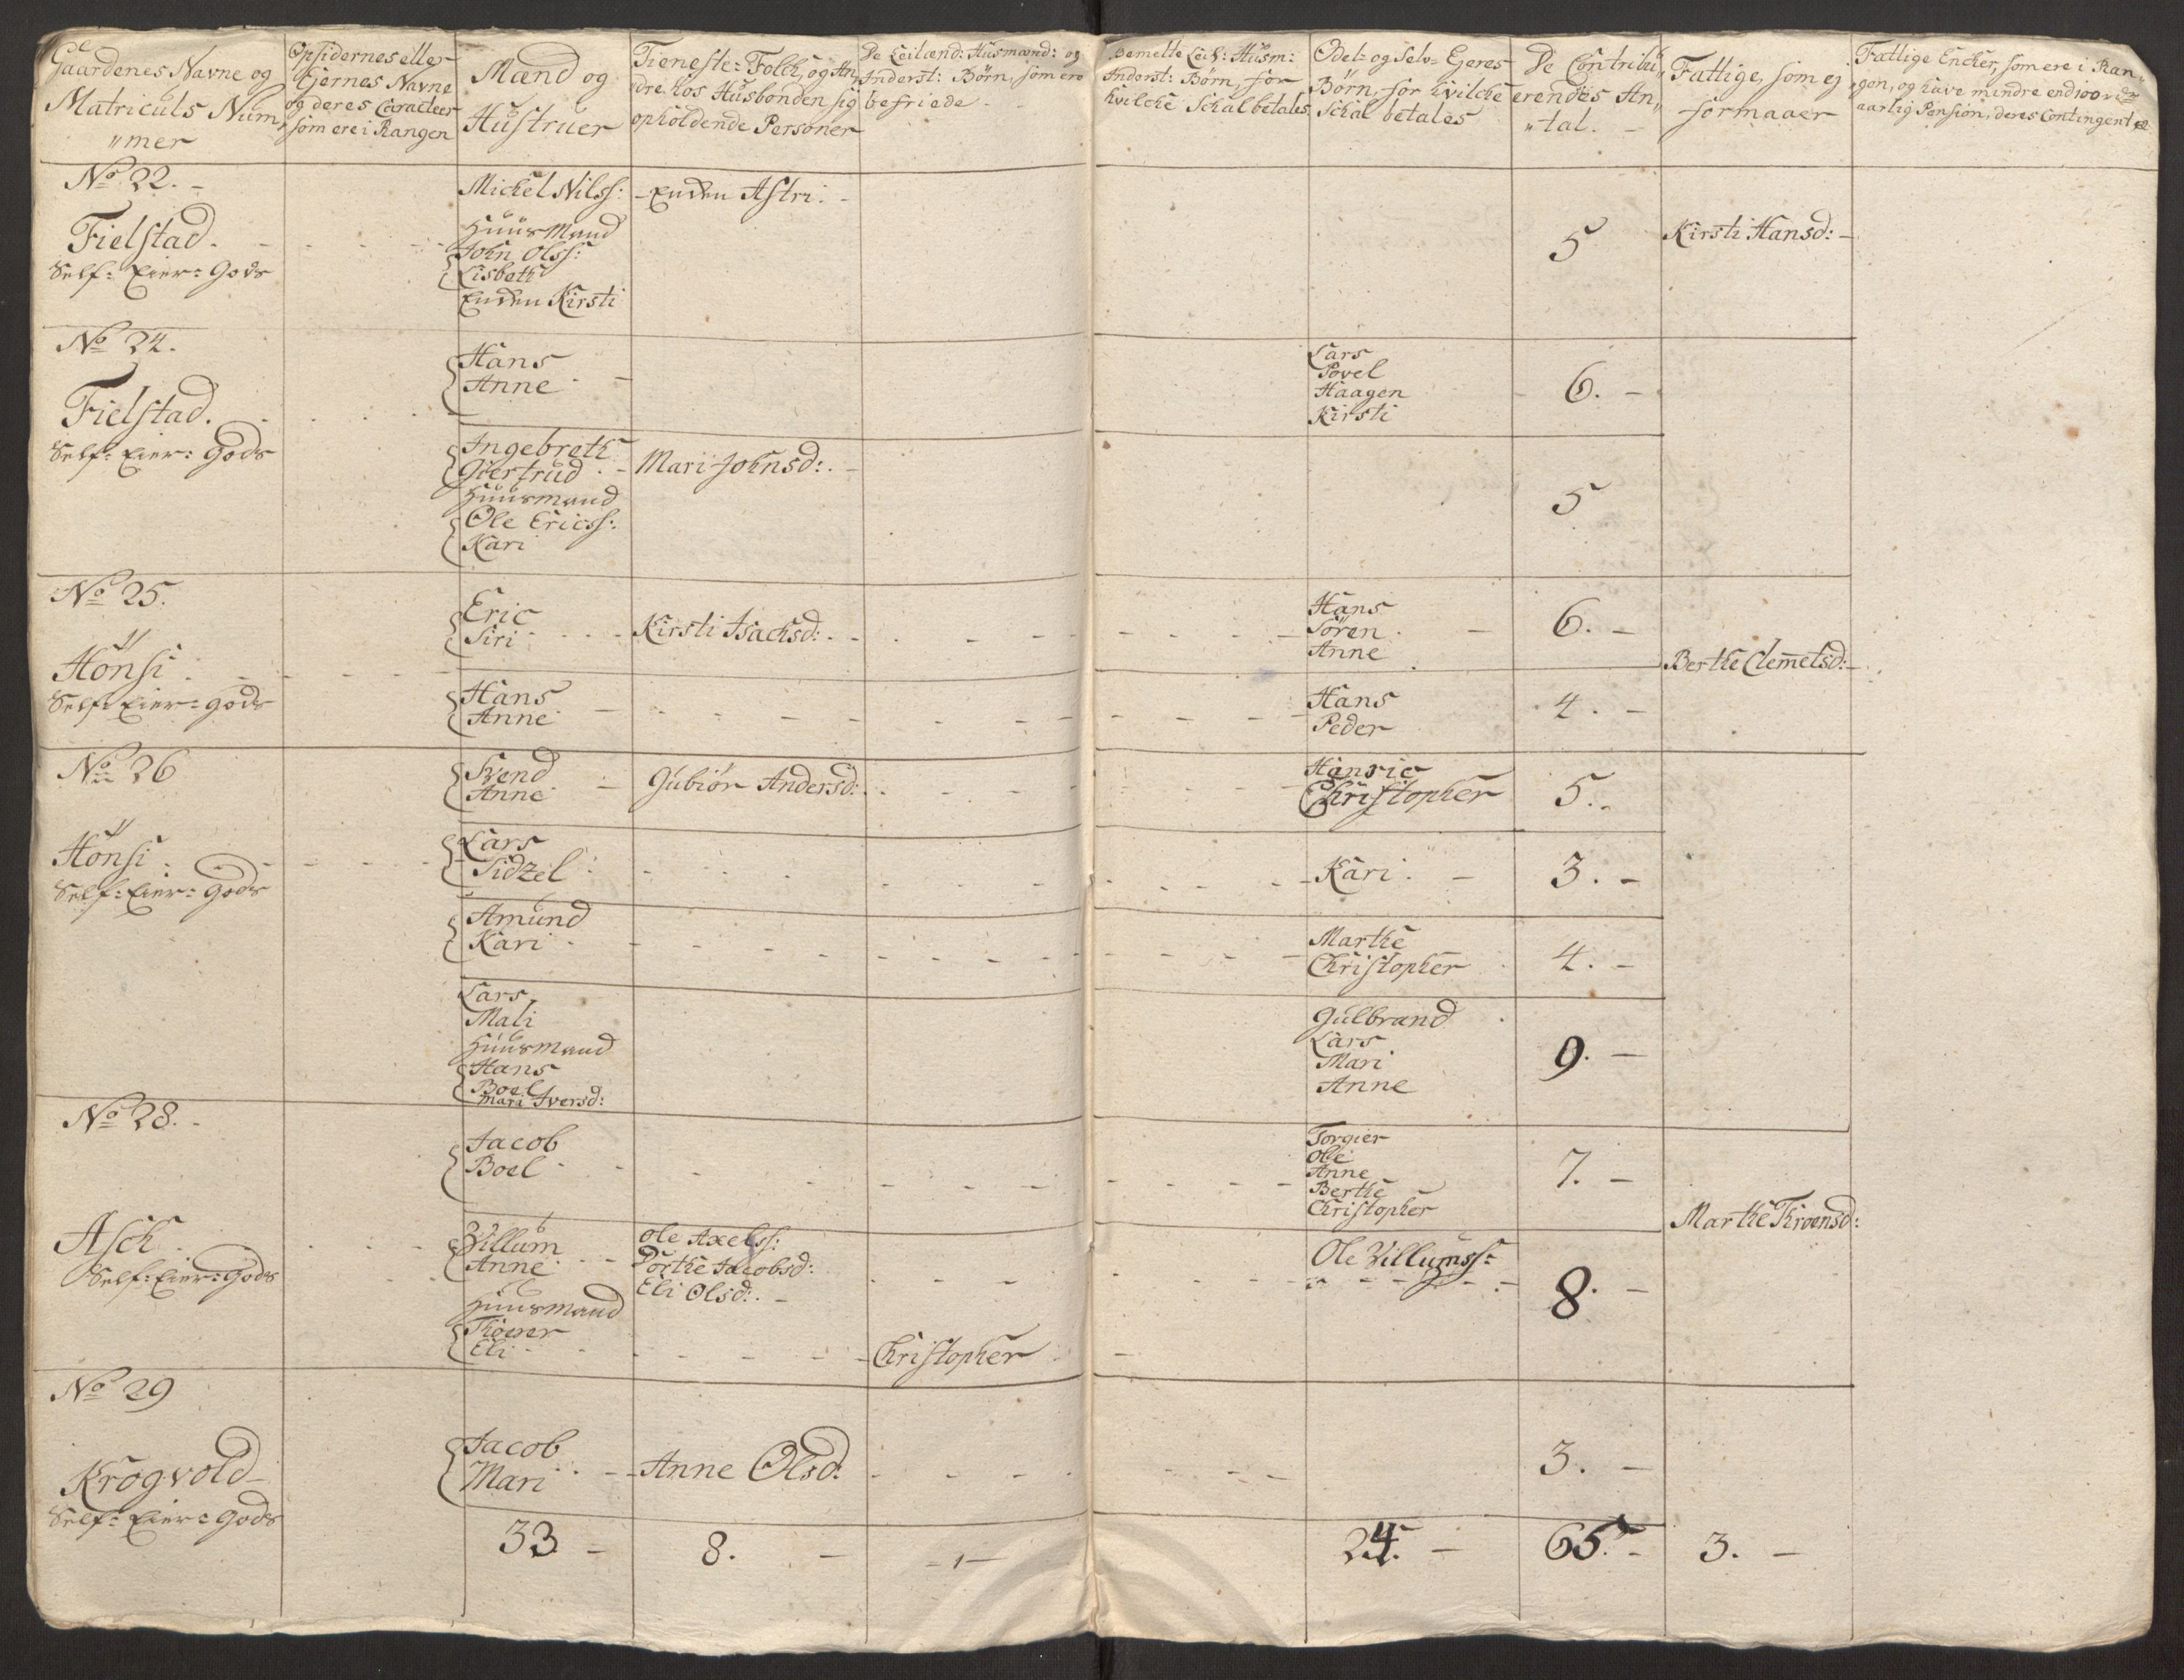 Gaardenes Navne og
Matriculs Num„
„mer
Opsidernes eller
Ejernes Navne
og deres Caracteer
som ere i Rangen
Mænd og
Hustruer
Tieneste: Folck, og An„
dre hos Husbonden sig
opholdende Personer
De Leilænd: Husmænd: og
Inderst: Börn, som ere
befriede
Bemelte Leil: Husm:
Inderst: Börn, for
hvilcke Schal betales
Odel- og Selv- Ejeres
Börn, for hvilcke
Schal betales
De Contribu„
erendes An„
„tal.
Fattige, som ej
formaaer
Fattige Encker, som ere i Ran„
„gen, og have mindre end 100 rdr
aarlig Pension, deres Contingent
No 22.
Fielstad.
Self: Eier: Gods
Michel Nilss:
Huusmand
John Olss:
Lisbeth
Enken Kirsti
Enken Astri.
5
Kirsti Hansd:
No 24.
Fielstad.
Self: Eier: Gods
Hans
Anne
Lars
Povel
Haagen
Kirsti
6.
Ingebreth
Giertrud
Huusmand
Ole Ericss:
Kari
Mari Johnsd:
5
No 25.
Hönsi
Self: Eier: gods
Eric
Siri
Kirsti Isachsd:
Hans
Sören
Anne
6.
Berthe Clemetsd:
Hans
Anne
Hans
Peder
4.
No 26
Hönsi
Self: Eier: Gods
Svend
Anne
Gubiör Andersd:
Hanric
Christopher
5.
Lars
Sidzel
Kari
3.
Amund
Kari
Marthe
Christopher
4.
Lars
Mali
Huusmand
Hans
Boel
Mari Iversd:
Gulbrand
Lars
Mari
Anne
9.
No 28.
Asch
Self: Eier: Gods
Jacob
Boel
Torgier
Ole
Anne
Berthe
Christopher
7.
Marthe Throensd:
Villum
Anne
Huusmand
Thorer
Eli
Ole Axelss:
Dorthe Jacobsd:
Eli Olsd:
Christopher
Ole Villumss:
8.
No 29
Krogvold
Self: Eier: Gods
Jacob
Mari
Anne Olsd:
3.
33
8.
1
24.
65.
3.